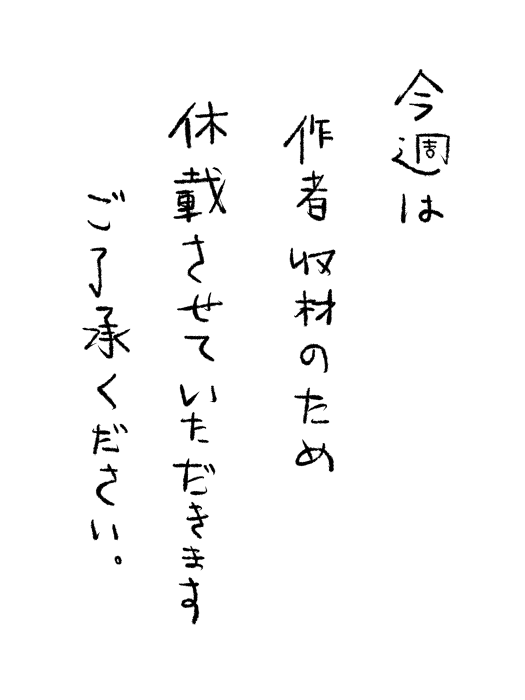 今週は
作者収材のため
休載させていただきます
ご了承ください。